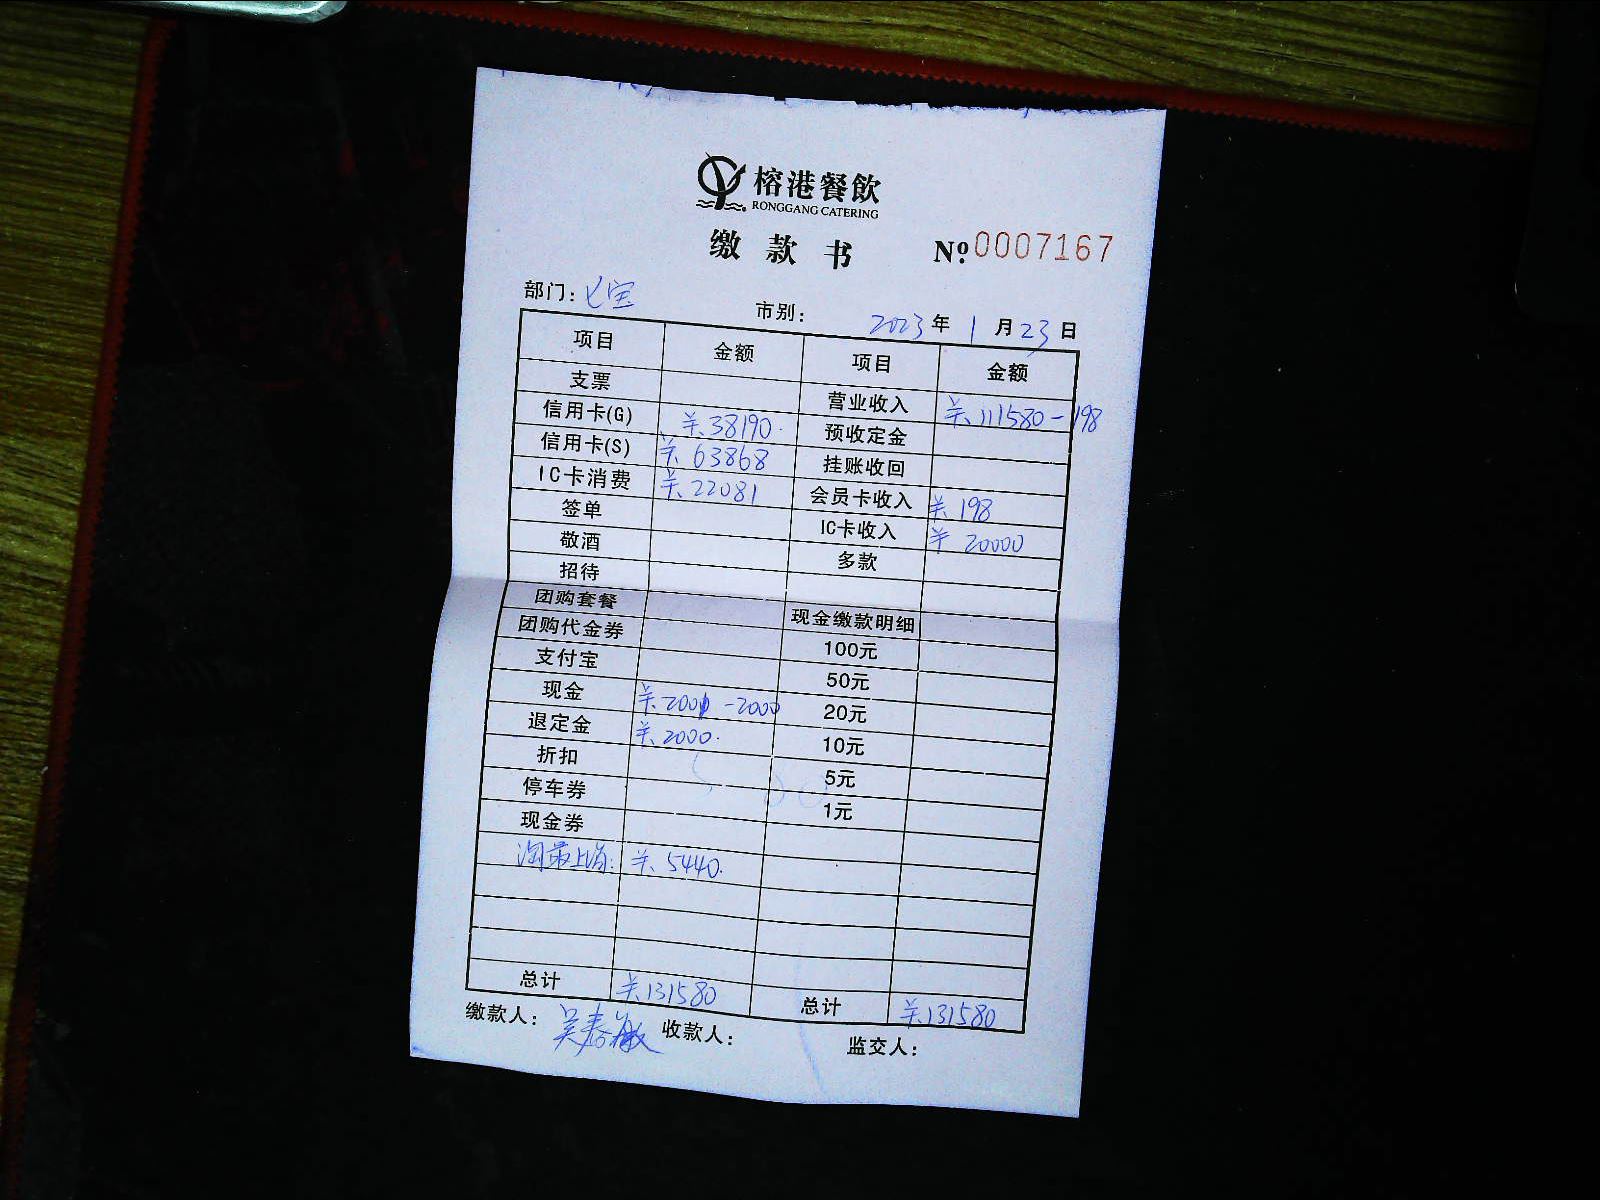 榕港餐飲
RONGGANG CATERING
缴款书 Nº.0007167
部门: 七宝 市别: 2023年1月23日
项目 金额 项目 金额
支票 营业收入 ¥.111580-198
信用卡(G) ¥.38190. 预收定金
信用卡(S) ¥.63868 挂账收回
IC卡消费 ¥.22081 会员卡收入 ¥.198
签单 IC卡收入 ¥20000
敬酒 多款
招待
团购套餐 现金缴款明细
团购代金券 100元
支付宝 50元
现金 ¥.2001-2000 20元
退定金 ¥.2000. 10元
折扣 5元
停车券 1元
现金券
¥.5440.
总计 ¥.131580 总计 ¥.131580
缴款人: 吴春 收款人: 监交人: